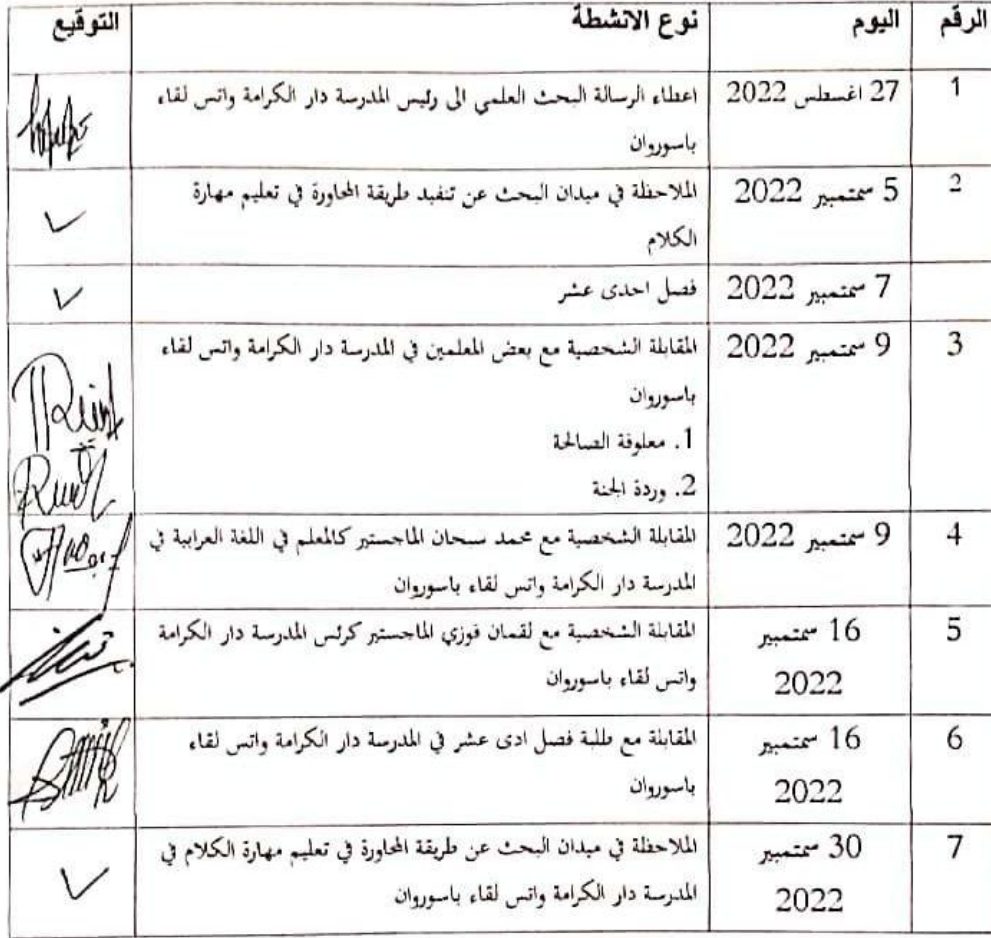 الرقم اليوم نوع الانشطة التوقيع
1 27 اغسطس 2022 اعطاء الرسالة البحث العلمي الى رئيس المدرسة دار الكرامة واتس لقاء
باسوروان
2 5 سمتمبير 2022 الملاحظة في ميدان البحث عن تنفيد طريقة المحاورة في تعليم مهارة
الكلام
7 سمتمبير 2022 فصل احدى عشر
3 9 سمتمبير 2022 المقابلة الشخصية مع بعض المعلمين في المدرسة دار الكرامة واتس لقاء
باسوروان
1. معلوفة الصالحة
2. وردة الجنة
4 9 سمتمبير 2022 المقابلة الشخصية مع محمد سبحان الماجستير كالمعلم في اللغة العرابية في
المدرسة دار الكرامة واتس لقاء باسوروان
5 16 سمتمبير المقابلة الشخصية مع لقمان فوزي الماجستير كرئس المدرسة دار الكرامة
2022 واتس لقاء باسوروان
6 16 سمتمبير المقابلة مع طلبة فصل ادى عشر في المدرسة دار الكرامة واتس لقاء
2022 باسوروان
7 30 سمتمبير الملاحظة في ميدان البحث عن طريقة المحاورة في تعليم مهارة الكلام في
2022 المدرسة دار الكرامة واتس لقاء باسوروان